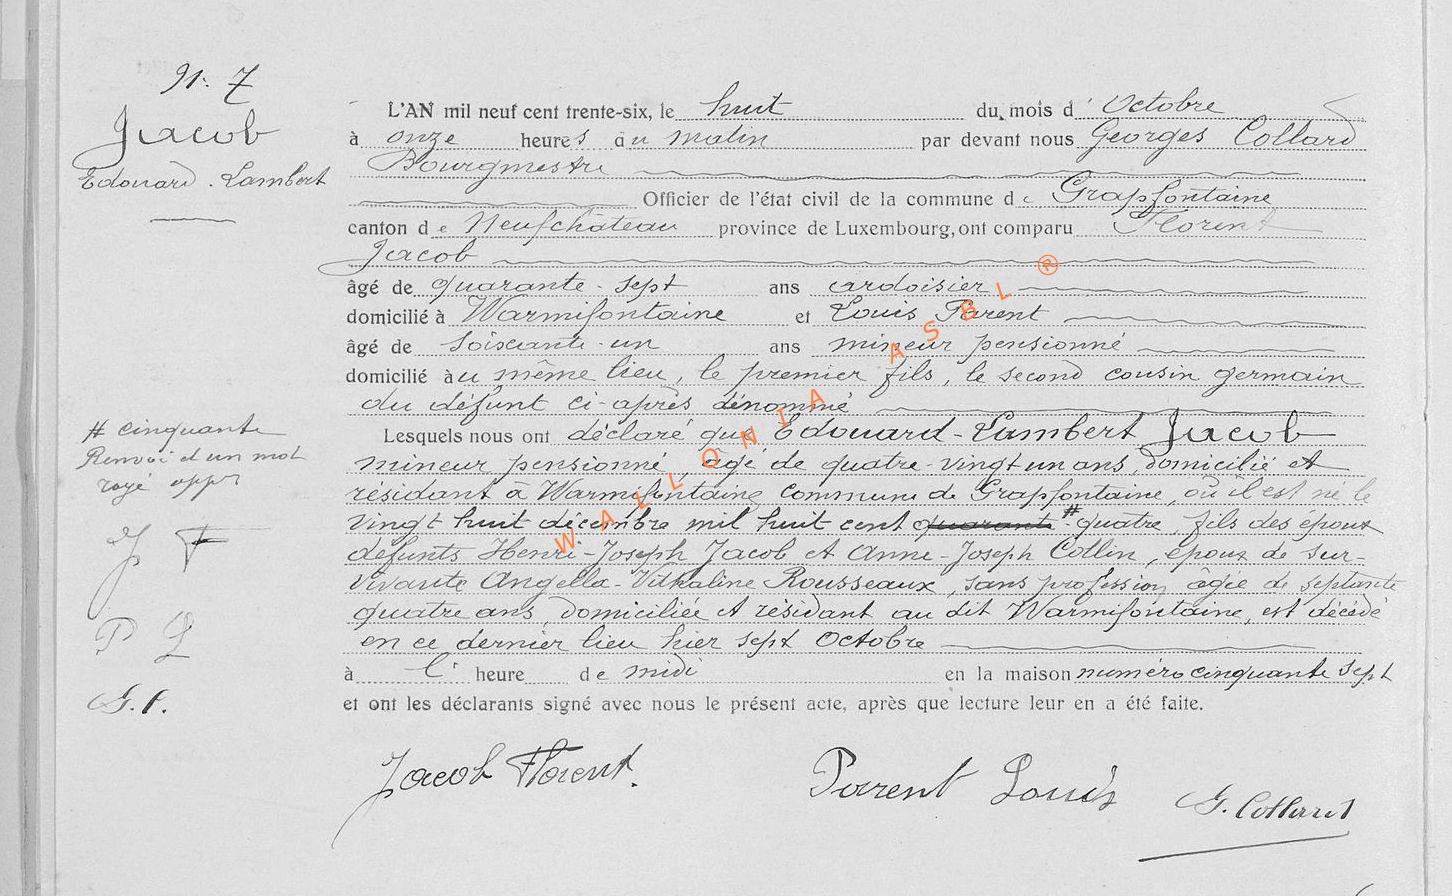 N. 7
Jacob
Edouard-Lambert
L'AN mil neuf cent trente-six, le huit du mois d'Octobre
à onze heures du matin par devant nous Georges Collard
Bourgmestre
Officier de l'état civil de la commune de Grapfontaine
canton de Neufchâteau province de Luxembourg, ont comparu Florent
Jacob
âgé de quarante-sept ans ardoisier
domicilié à Warmifontaine et Louis Parent
âgé de soixante-un ans mineur pensionné
domicilié au même lieu, le premier fils, le second cousin germain
du défunt ci-après dénommé
Lesquels nous ont déclaré que Edouard-Lambert Jacob
mineur pensionné, âgé de quatre-vingt un ans, domicilié et
résidant à Warmifontaine commune de Grapfontaine, où il est né le
vingt huit décembre mil huit cent quarante # quatre, fils des époux
défunts Henri-Joseph Jacob et Anne-Joseph Collin, époux de sur-
vivante Angella-Vithaline Rousseaux, sans profession, âgée de septante
quatre ans, domiciliée et résidant au dit Warmifontaine, est décédé
en ce dernier lieu hier sept Octobre
à l' heure de midi en la maison numéro cinquante sept
et ont les déclarants signé avec nous le présent acte, après que lecture leur en a été faite.
# cinquante
Renvoi et un mot
rayé appr
J F
P L
G. C.
Jacob Florent. Parent Louis G. Collard
WALLONIA ASBL ®